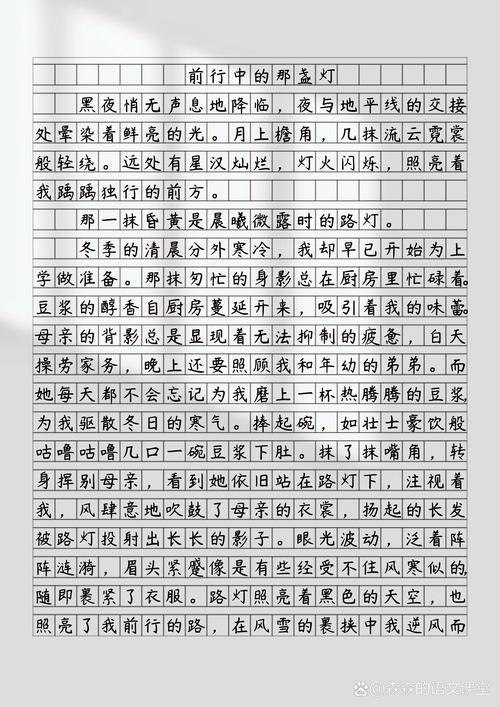 前行中的那盏灯
黑夜悄无声息地降临，夜与地平线的交接
处晕染着鲜亮的光。月上檐角，几抹流云霓裳
般轻绕。远处有星汉灿烂，灯火闪烁，照亮着
我踽踽独行的前方。
那一抹昏黄是晨曦微露时的路灯。
冬季的清晨分外寒冷，我却早已开始为上
学做准备。那抹匆忙的身影总在厨房里忙碌着。
豆浆的醇香自厨房蔓延开来，吸引着我的味蕾。
母亲的背影总是显现着无法抑制的疲惫，白天
操劳家务，晚上还要照顾我和年幼的弟弟。而
她每天都不会忘记为我磨上一杯热腾腾的豆浆，
为我驱散冬日的寒气。捧起碗，如壮士豪饮般
咕噜咕噜几口一碗豆浆下肚。抹了抹嘴角，转
身挥别母亲，看到她依旧站在路灯下，注视着
我，风肆意地吹鼓了母亲的衣裳，扬起的长发
被路灯投射出长长的影子。眼光波动，泛着阵
阵涟漪，眉头紧蹙像是有些经受不住风寒似的，
随即裹紧了衣服。路灯照亮着黑色的天空，也
照亮了我前行的路，在风雪的裹挟中我逆风而
森森的语文课堂